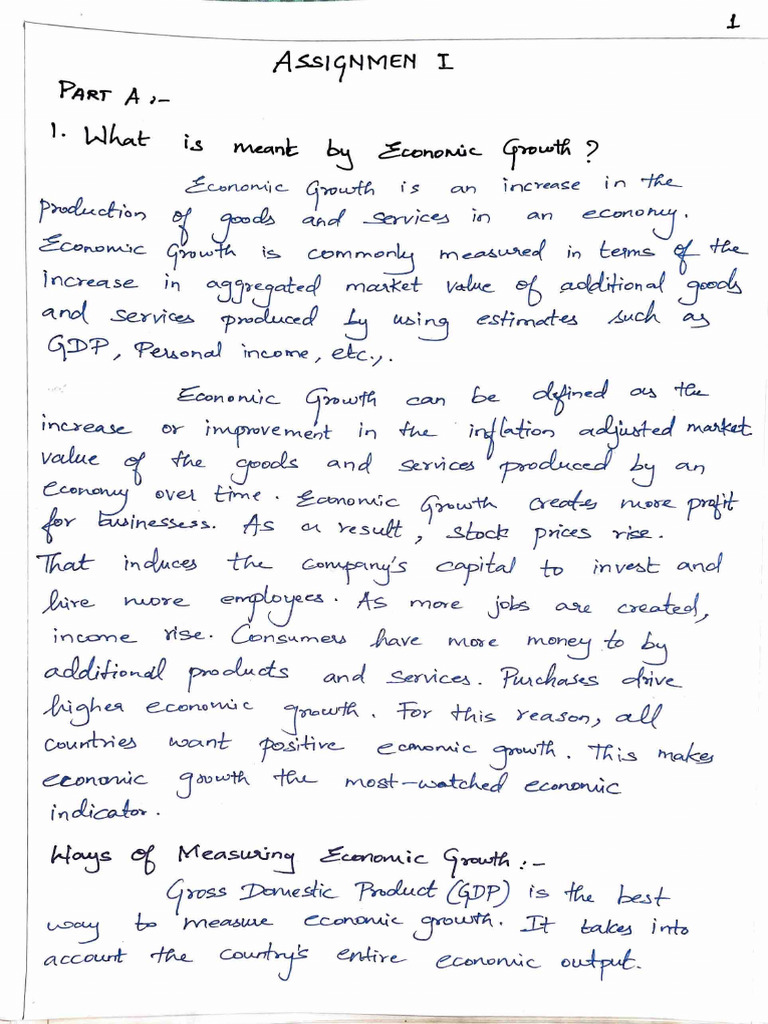 1
ASSIGNMEN I
PART A :-
1. What is meant by Economic Growth ?
Economic Growth is an increase in the
production of goods and services in an economy.
Economic Growth is commonly measured in terms of the
increase in aggregated market value of additional goods
and services produced by using estimates such as
GDP, Personal income, etc.,.
Economic Growth can be defined as the
increase or improvement in the inflation adjusted market
value of the goods and services produced by an
economy over time. Economic Growth creates more profit
for businessess. As a result, stock prices rise.
That induces the company's capital to invest and
hire more employees. As more jobs are created,
income rise. Consumers have more money to by
additional products and services. Purchases drive
higher economic growth. For this reason, all
countries want positive economic growth. This makes
economic growth the most-watched economic
indicator.
Ways of Measuring Economic Growth :-
Gross Domestic Product (GDP) is the best
way to measure economic growth. It takes into
account the country's entire economic output.